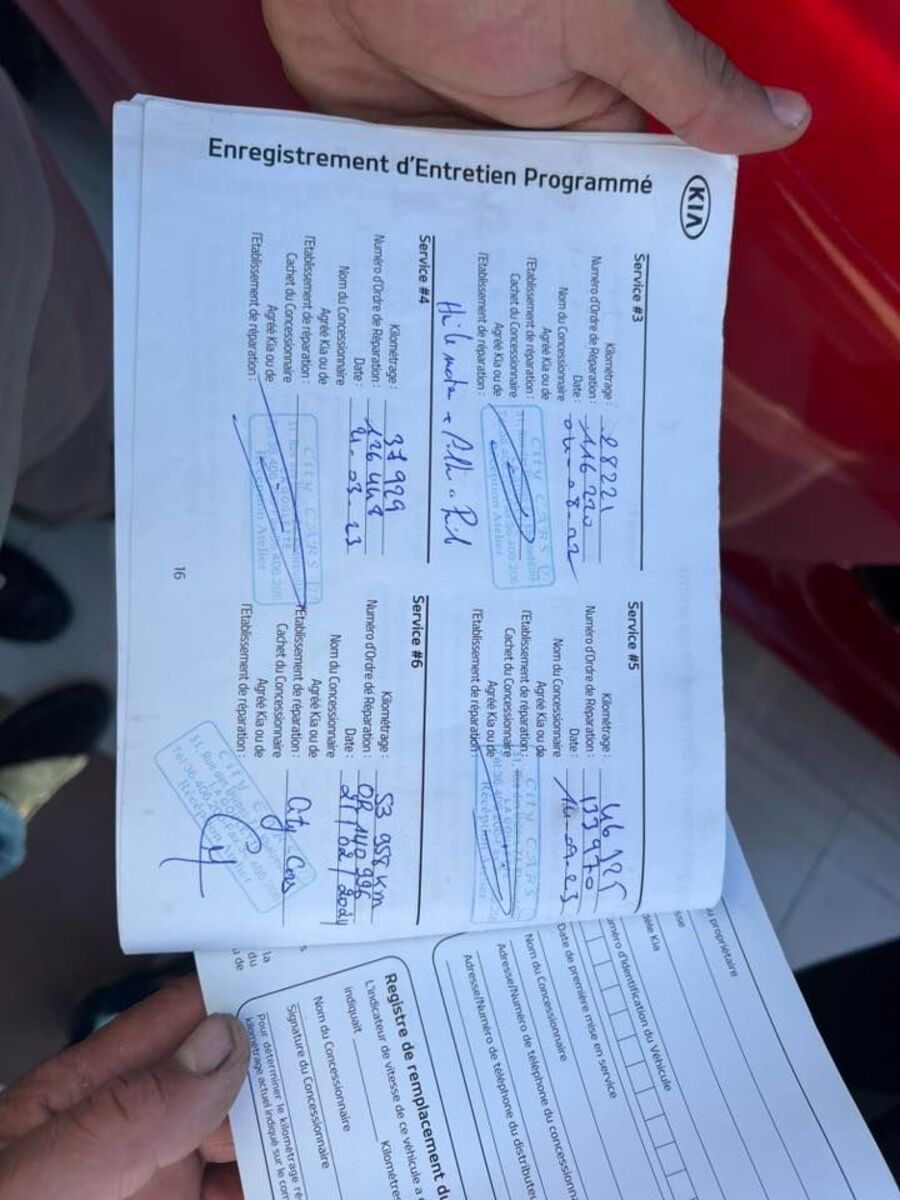 KIA
Enregistrement d'Entretien Programmé
Service #3
Kilométrage :
Numéro d'Ordre de Réparation : 116 220
Date : 04-08-22
Nom du Concessionnaire
Agréé Kia ou de
l'Etablissement de réparation :
Cachet du Concessionnaire
Agréé Kia ou de
l'Etablissement de réparation :
CITY CARS
Réception Atelier
Service #4
Kilométrage : 37 929
Numéro d'Ordre de Réparation : 126 448
Date : 21-03-23
Nom du Concessionnaire
Agréé Kia ou de
l'Etablissement de réparation :
Cachet du Concessionnaire
Agréé Kia ou de
l'Etablissement de réparation :
CITY CARS
Réception Atelier
16
Service #5
Kilométrage : 46 125
Numéro d'Ordre de Réparation : 133 970
Date : 14-09-23
Nom du Concessionnaire
Agréé Kia ou de
l'Etablissement de réparation :
Cachet du Concessionnaire
Agréé Kia ou de
l'Etablissement de réparation :
CITY CARS
Service #6
Kilométrage : 53 958 KM
Numéro d'Ordre de Réparation : OR 140 996
Date : 21/02/2024
Nom du Concessionnaire
Agréé Kia ou de
l'Etablissement de réparation : City Cars
Cachet du Concessionnaire
Agréé Kia ou de
l'Etablissement de réparation :
CITY
Réception Atelier
u propriétaire
sse
dèle Kia
uméro d'identification du Véhicule
Date de première mise en service
Nom du Concessionnaire
Adresse/Numéro de téléphone du concessionn
Adresse/Numéro de téléphone du distributeu
Registre de remplacement du
L'indicateur de vitesse de ce véhicule a
indiquait Kilomètres
Nom du Concessionnaire
Signature du Concessionnaire
Pour déterminer le kilométrage ré
kilométrage actuel indiqué sur le com